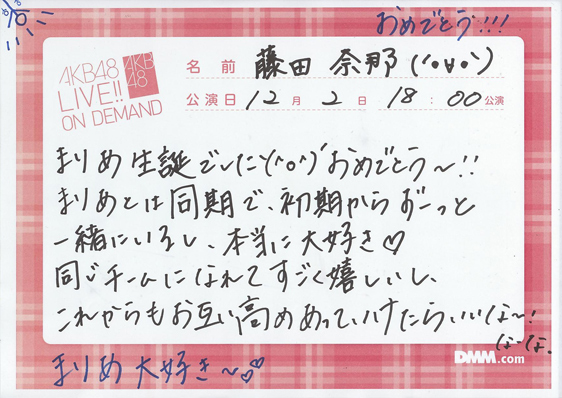 おめでとう!!!
AKB48
LIVE!!
ON DEMAND
AKB
48
名前 藤田 奈那 (‵•∀•′)
公演日 12月 2日 18:00公演
まりめ生誕でした\(^o^)/おめでとう〜!!
まりめとは同期で、初期からずーっと
一緒にいるし、本当に大好き♡
同じチームになれてすごく嬉しいし、
これからもお互い高めあっていけたらいいな〜!
なーな。
DMM.com
まりめ大好き〜♡♡